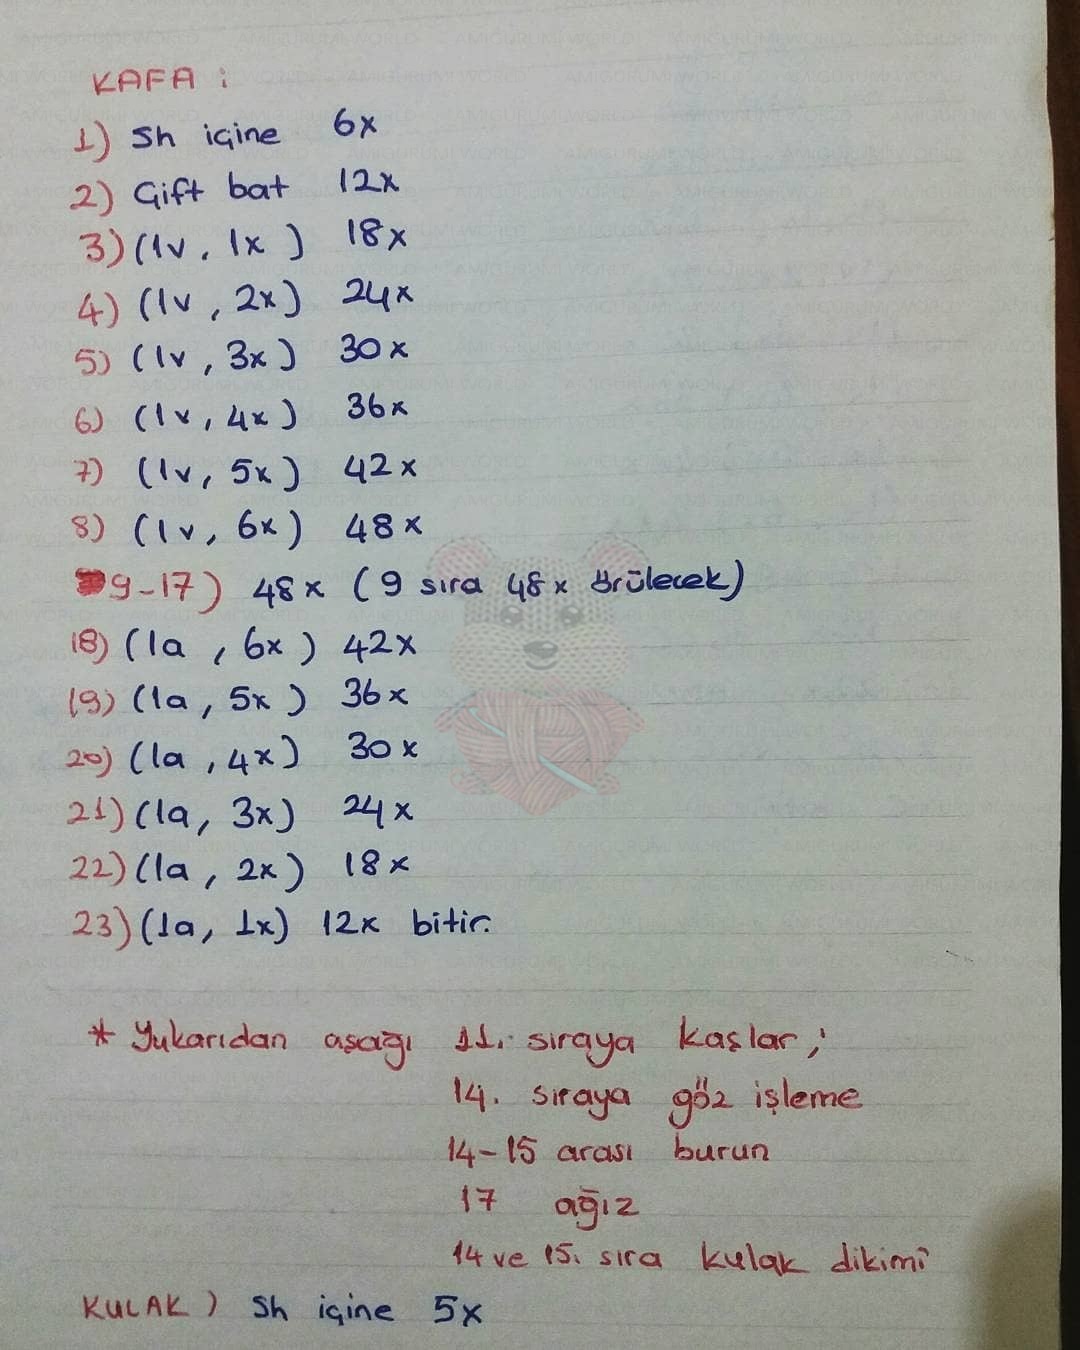 KAFA :
1) Sh içine 6x
2) Çift bat 12x
3) (1v, 1x) 18x
4) (1v, 2x) 24x
5) (1v, 3x) 30x
6) (1v, 4x) 36x
7) (1v, 5x) 42x
8) (1v, 6x) 48x
9-17) 48x (9 sıra 48x örülecek)
18) (1a, 6x) 42x
19) (1a, 5x) 36x
20) (1a, 4x) 30x
21) (1a, 3x) 24x
22) (1a, 2x) 18x
23) (1a, 1x) 12x bitir.
* Yukarıdan aşağı 11. sıraya kaşlar;
14. sıraya göz işleme
14-15 arası burun
17 ağız
14 ve 15. sıra kulak dikimi
KULAK) Sh içine 5x